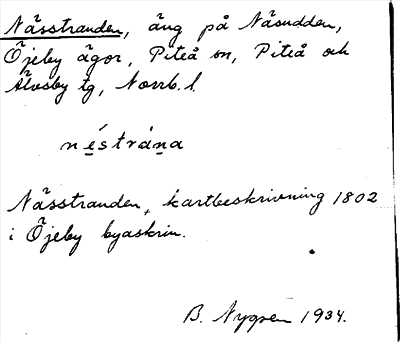 Nässtranden, äng på Näsudden,
Öjeby ägor, Piteå sn, Piteå och
Älvsby tg, Norrb. l.
néstrána
Nässtranden, kartbeskrivning 1802
i Öjeby byaskrin.
B. Nygren 1934.